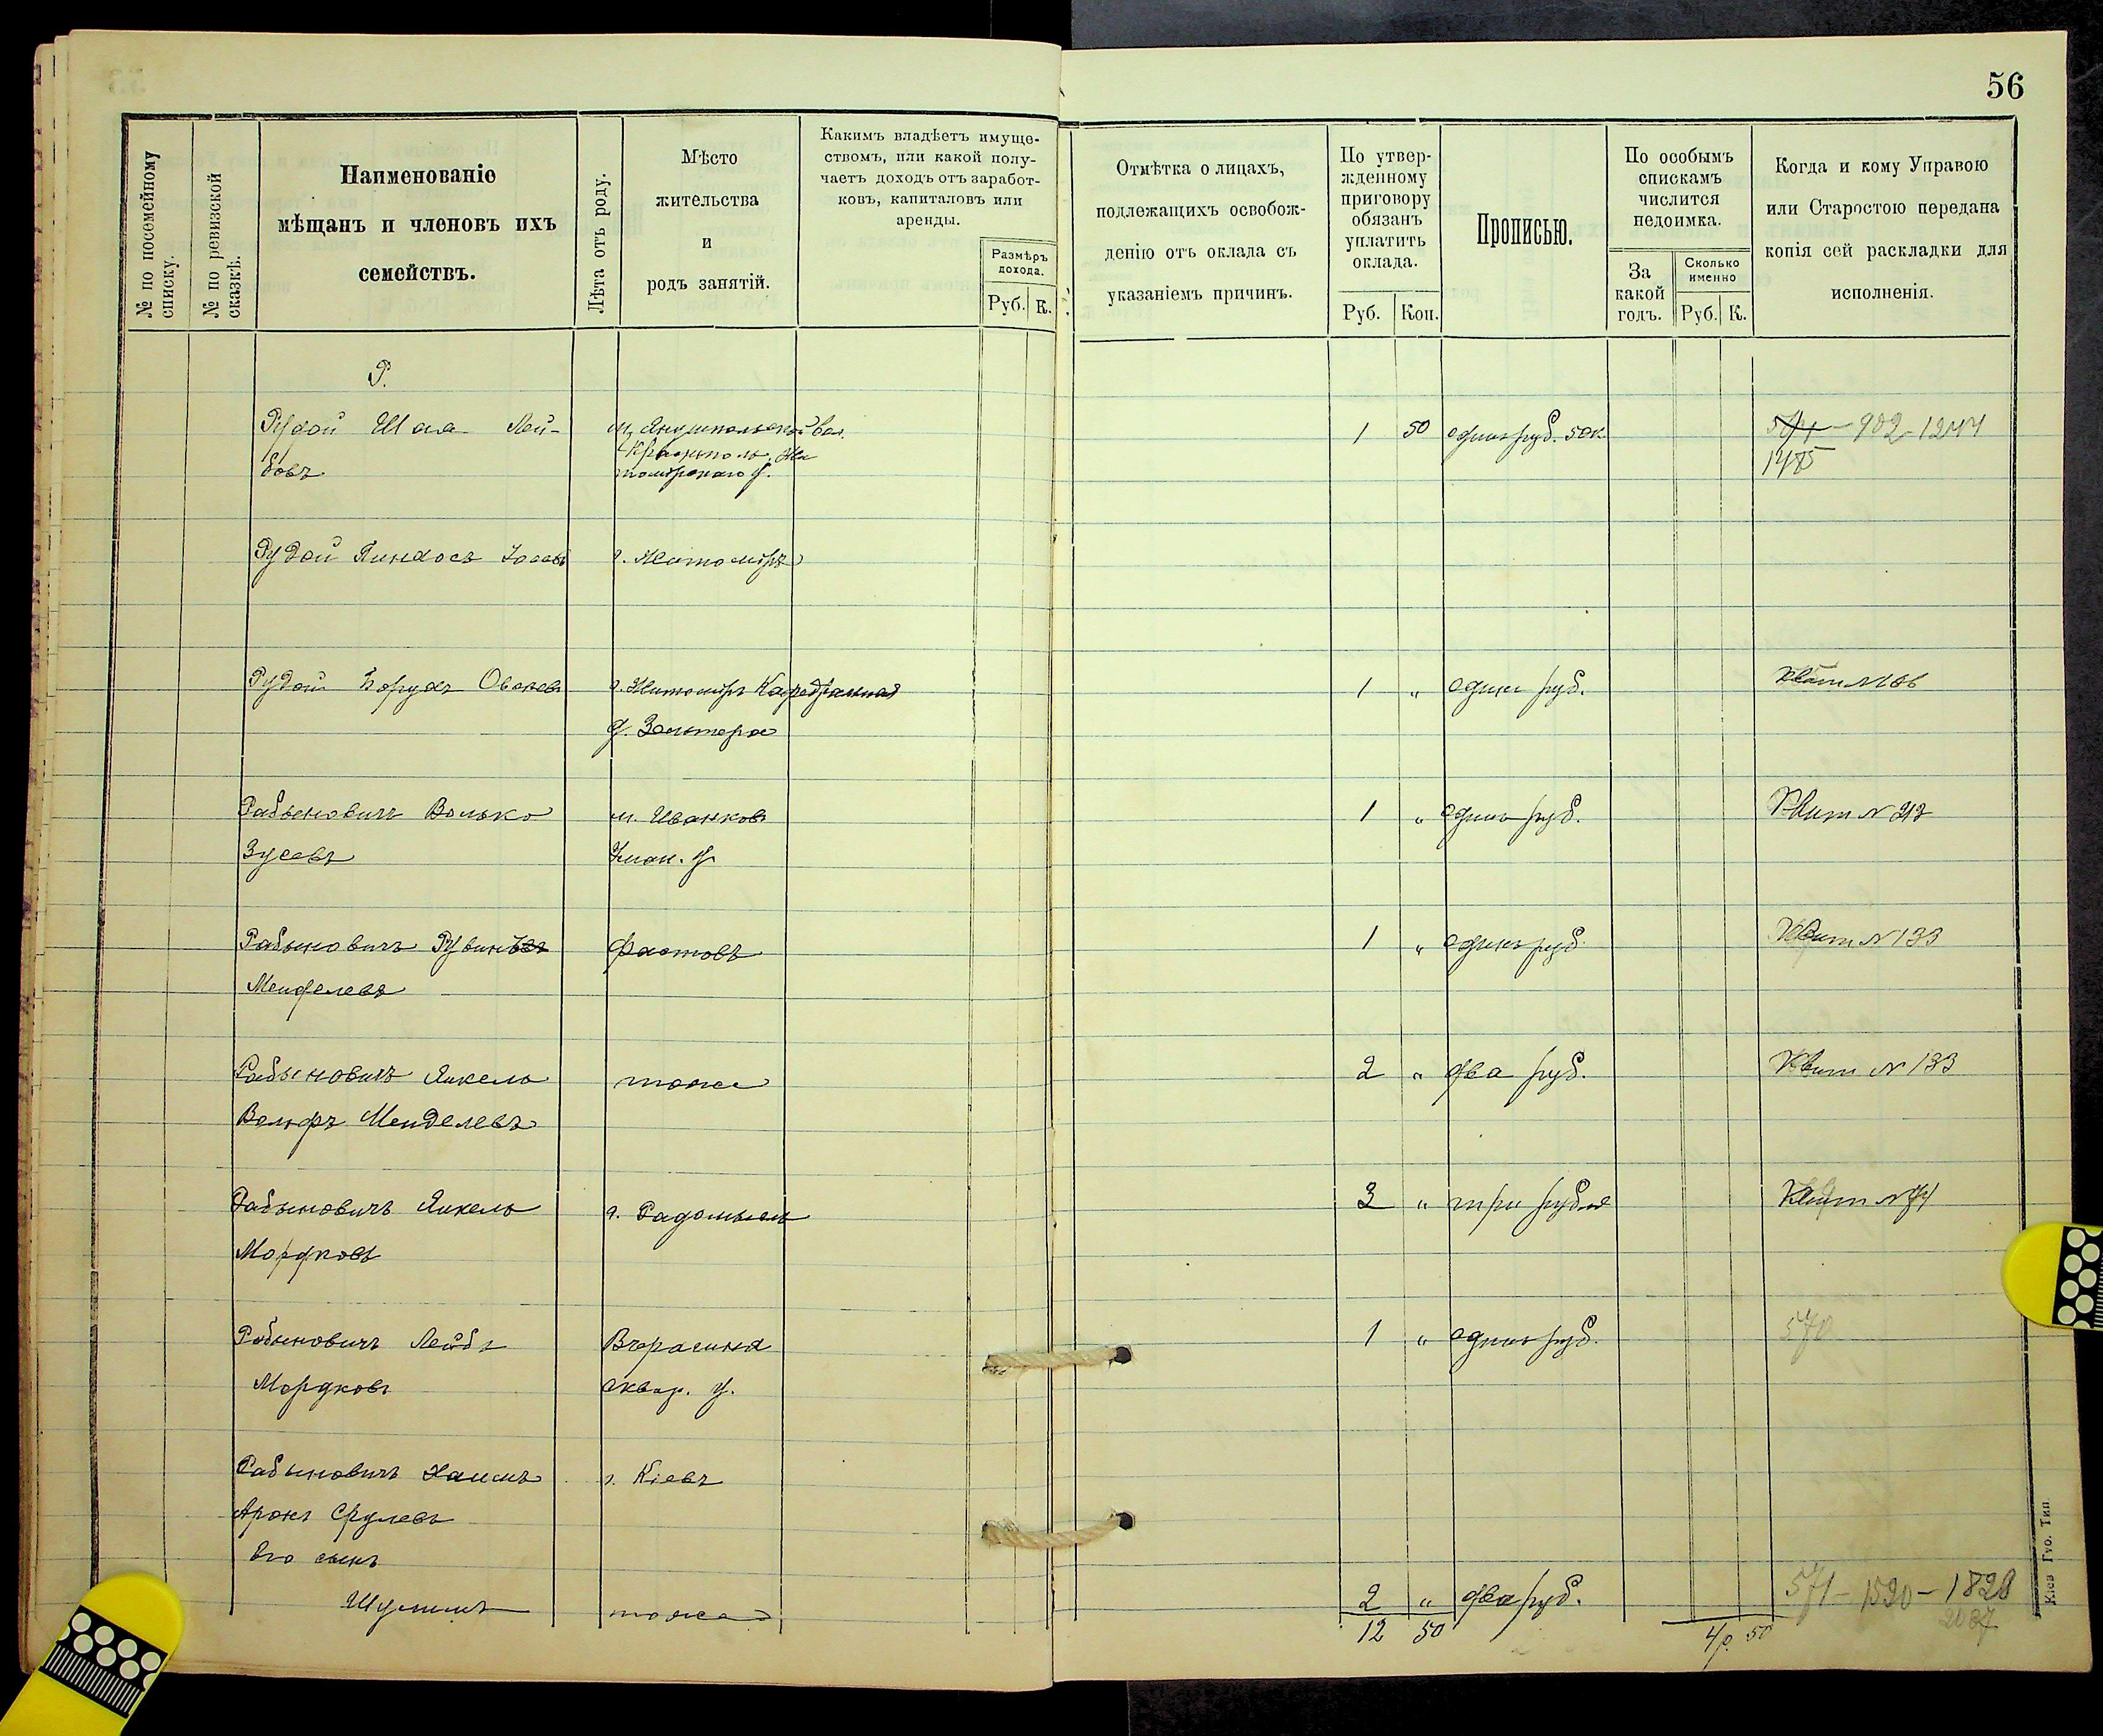 56
№ по посемейному списку.
№ по ревизской сказкѣ.
Наименованіе
мѣщанъ и членовъ ихъ
семействъ.
Лѣта отъ роду.
Мѣсто
жительства
и
родъ занятій.
Какимъ владѣетъ имуще-
ствомъ, или какой полу-
чаетъ доходъ отъ заработ-
ковъ, капиталовъ или
аренды.
Размѣръ
дохода.
Руб. К.
Отмѣтка о лицахъ,
подлежащихъ освобож-
денію отъ оклада съ
указаніемъ причинъ.
По утвер-
жденному
приговору
обязанъ
уплатить
оклада.
Руб. Коп.
Прописью.
По особымъ
спискамъ
числится
недоимка.
За
какой
годъ.
Сколько
именно
Руб. К.
Когда и кому Управою
или Старостою передана
копія сей раскладки для
исполненія.
Р.
Рудой Шая Лей- 1 50 одинъ руб. 50 к. 902-1244
бовъ
Рудой Пинхосъ г. Житоміръ
Рудой Борухъ г. Житоміръ Кафедральная 1 " одинъ руб.
д. Зальтера
Рабиновичъ Волько м. Иванковъ 1 " одинъ руб. Квит № 213
Зусевъ Уман. у.
Рабиновичъ Рувинъ Фастовъ 1 " одинъ руб. Квит № 133
Менделевъ
Рабиновичъ Янкель тоже 2 " два руб. Квит № 133
Вольфъ Менделевъ
Рабиновичъ Янкель г. Радомысль 3 " три рубля Квит № 74
Мордковъ
Рабиновичъ Лейбъ 1 " одинъ руб. 570
Мордковъ сквир. у.
Рабиновичъ Хаимъ г. Кіевъ
Аронъ Срулевъ
Его сынъ
Шулимъ тоже 2 " два руб. 571-1520-1828
12 50 4р. 50 2037
Кіев Губ. Тип.